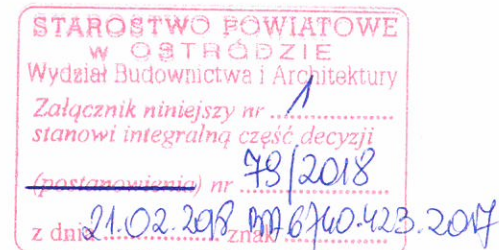 STAROSTWO POWIATOWE
W OSTRÓDZIE
Wydział Budownictwa i Architektury
Załącznik niniejszy nr 1
stanowi integralną część decyzji
(postanowienia) nr 79/2018
z dnia 21.02.2018 znak 6740.423.2017